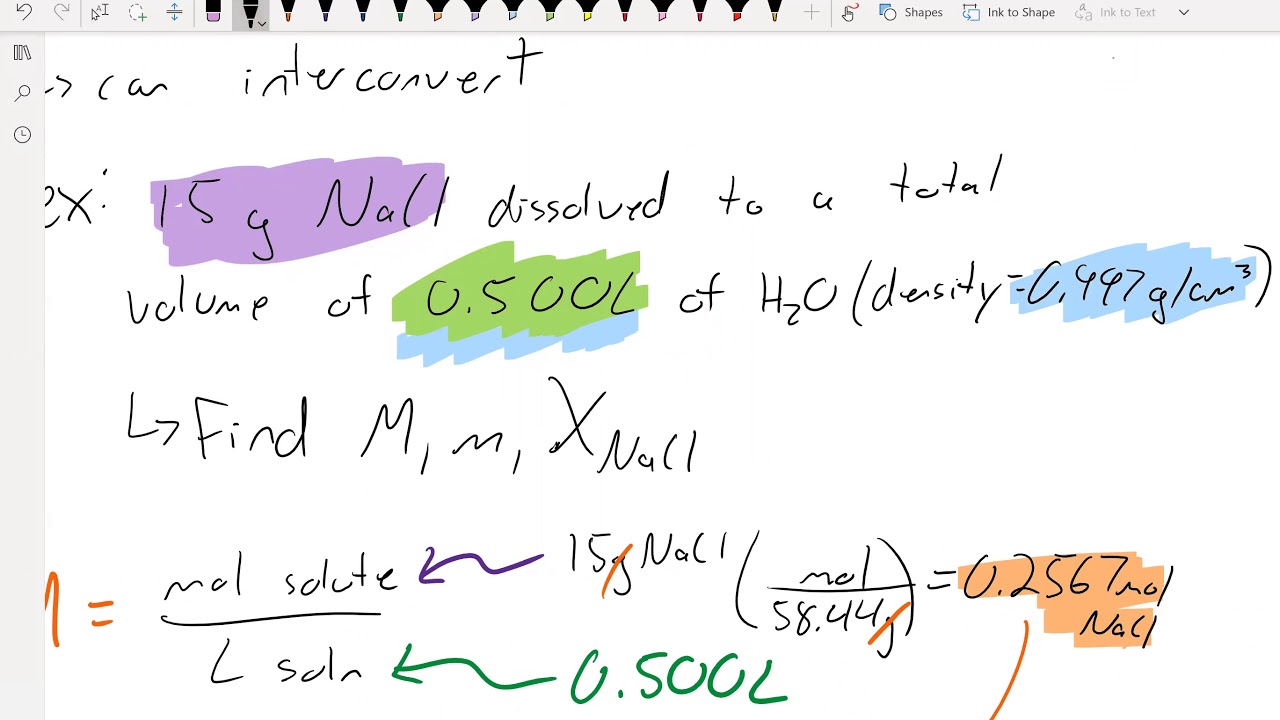 Shapes Ink to Shape Ink to Text
↳ can interconvert
ex: 15 g NaCl dissolved to a total
volume of 0.500L of H₂O (density = 0.997 g/cm³)
↳ Find M, m, X_NaCl
mol solute 15g NaCl (mol/58.44g) = 0.2567 mol NaCl
M =
L soln 0.500L